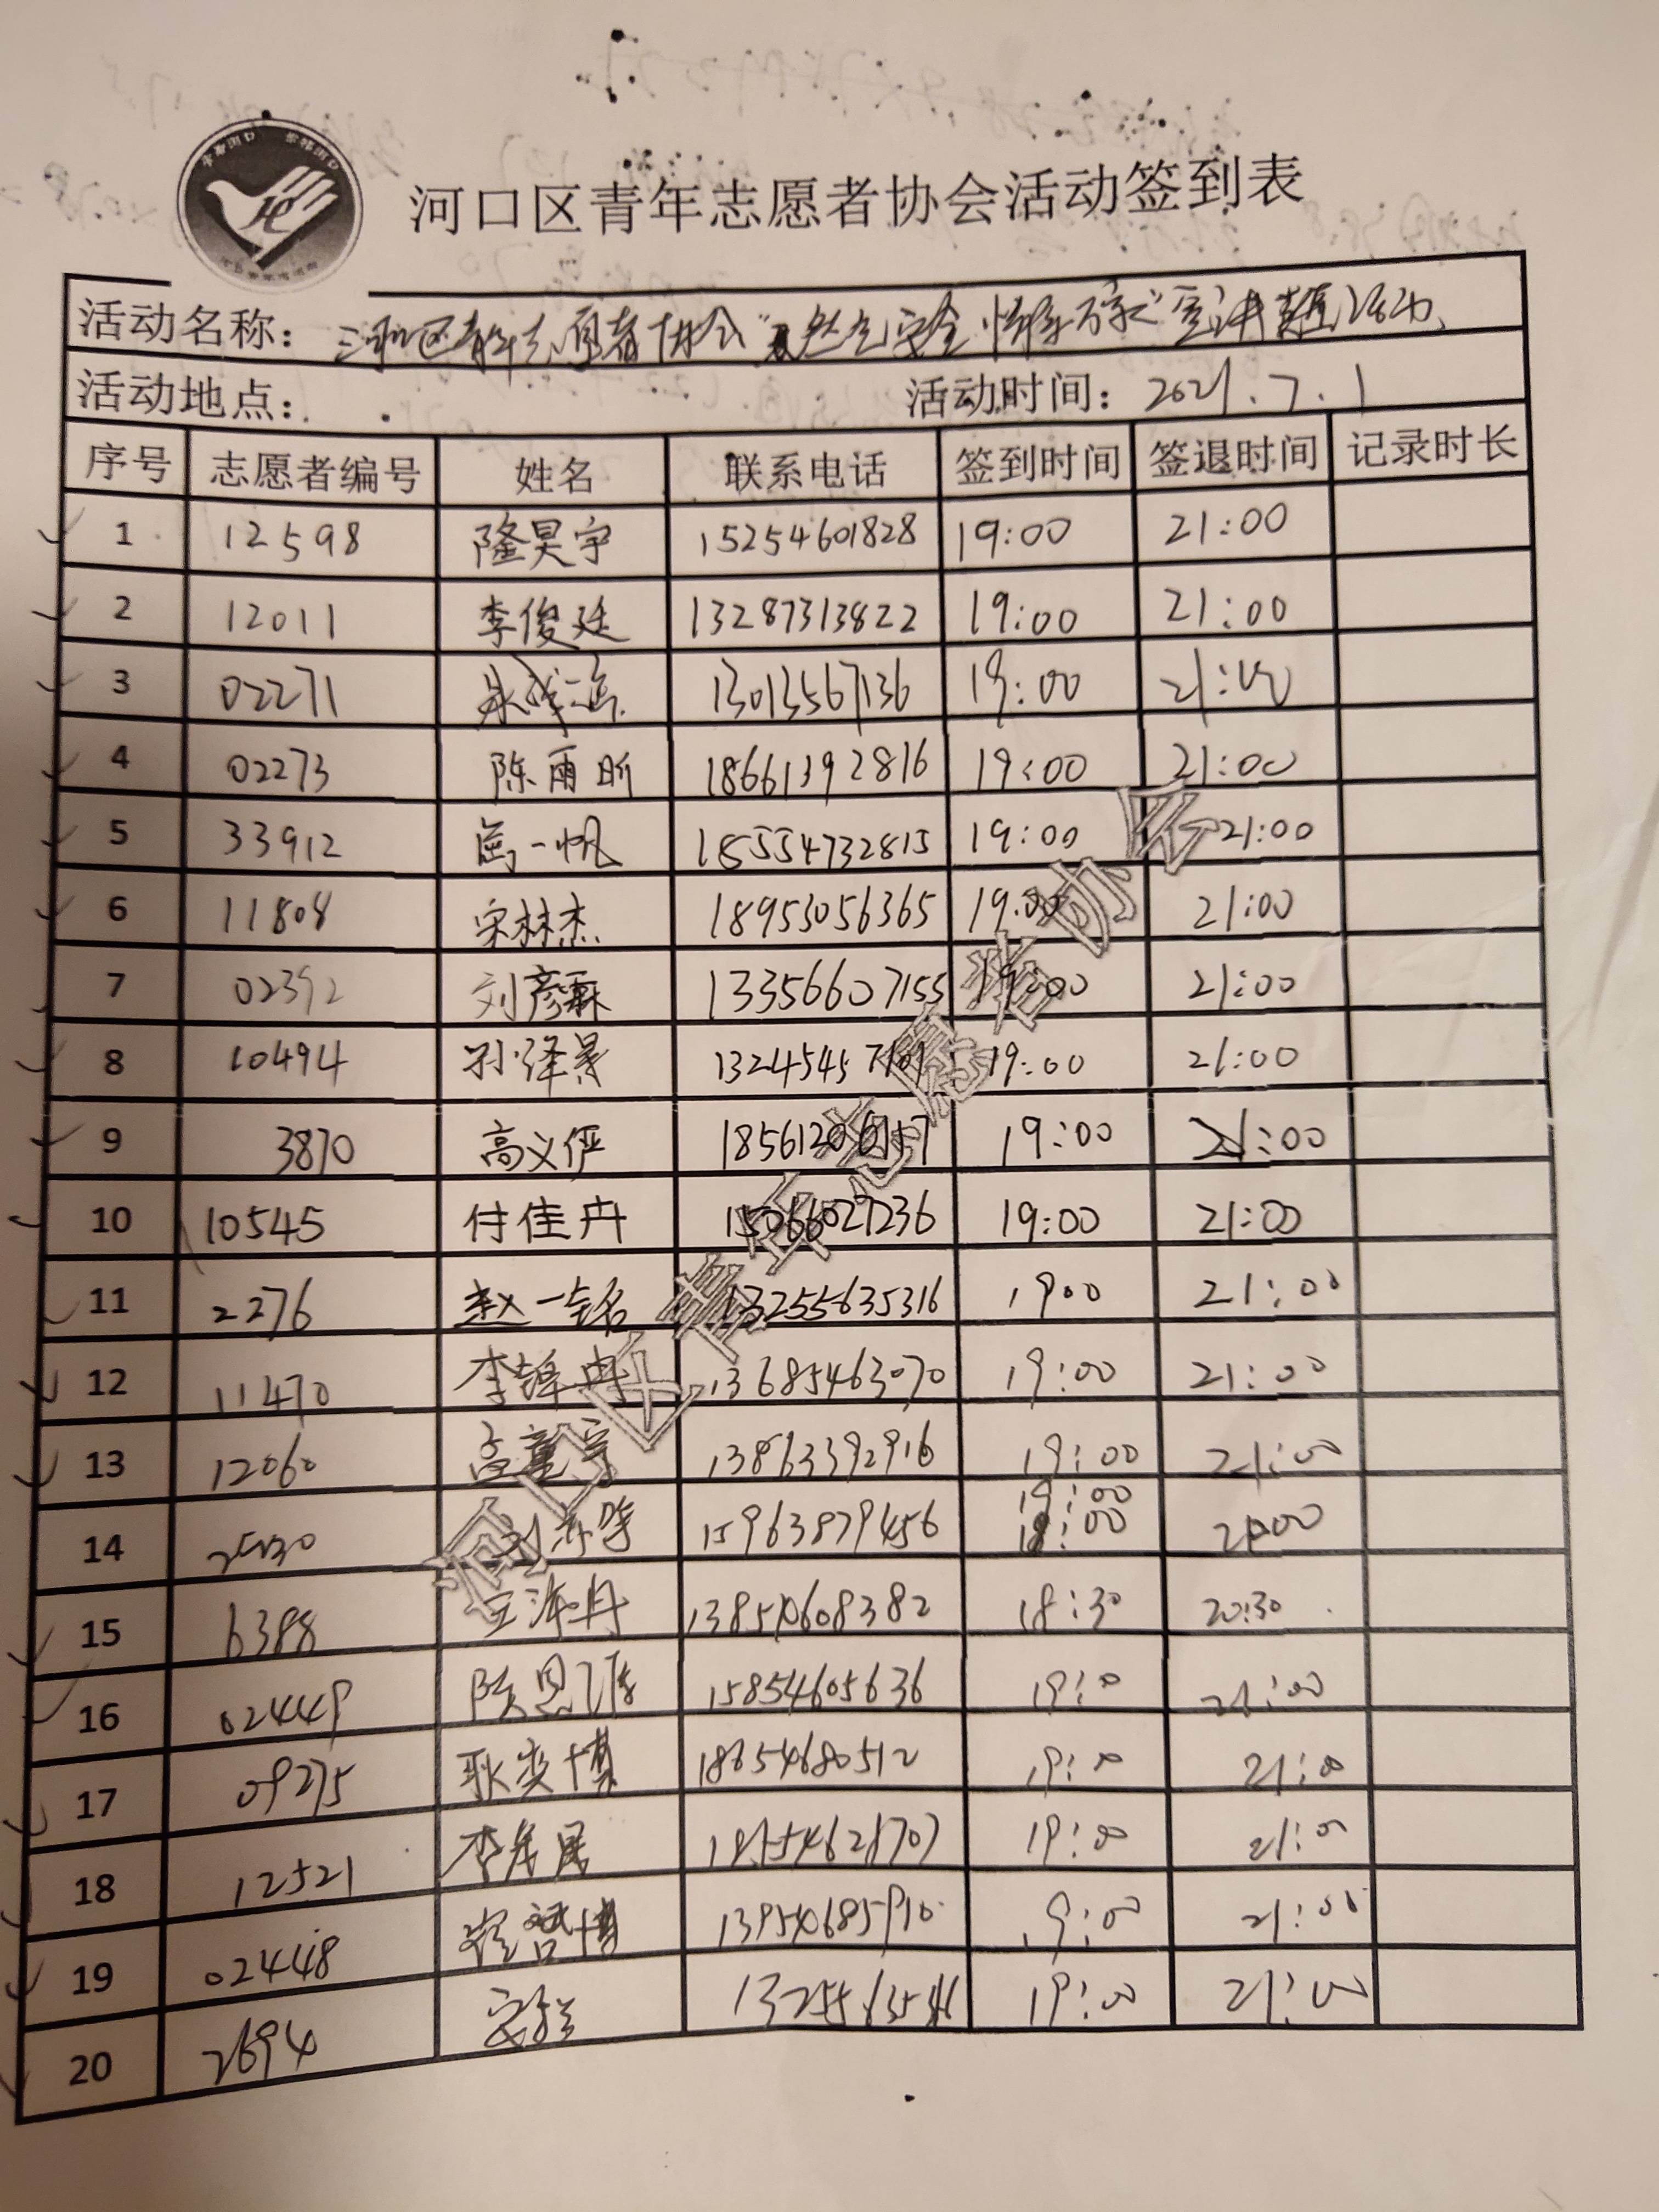 河口区青年志愿者协会活动签到表
活动名称： 河口区青年志愿者协会"燃气安全 情系万家"宣讲 活动
活动地点： 活动时间： 2021.7.1
序号 志愿者编号 姓名 联系电话 签到时间 签退时间 记录时长
1 12598 隆昊宇 15254601828 19:00 21:00
2 12011 李俊廷 13287313822 19:00 21:00
3 02271 13013567136 19:00 21:00
4 02273 陈雨昕 18661392816 19:00 21:00
5 33912 一帆 18554732815 19:00 21:00
6 11808 宋林杰 18953056365 19:00 21:00
7 02392 刘彦霖 13356607155 19:00 21:00
8 10494 孙泽景 19:00 21:00
9 3870 高义俨 19:00 21:00
10 10545 付佳卉 15066027236 19:00 21:00
11 2276 赵一铭 13255635316 19:00 21:00
12 11470 李 冉 13685463070 19:00 21:00
13 12060 孟童宇 13863392916 19:00 21:00
14 15963879456 19:00 18:00 21:00
15 6388 王海丹 18:30 20:30
16 02449 陈恩 15854605636 19:0 21:00
17 09275 耿奕博 18654680512 19:00 21:00
18 12521 19:00 21:00
19 02448 崔哲博 19:00 21:00
20 2694 19:00 21:00
河口区青年志愿者协会